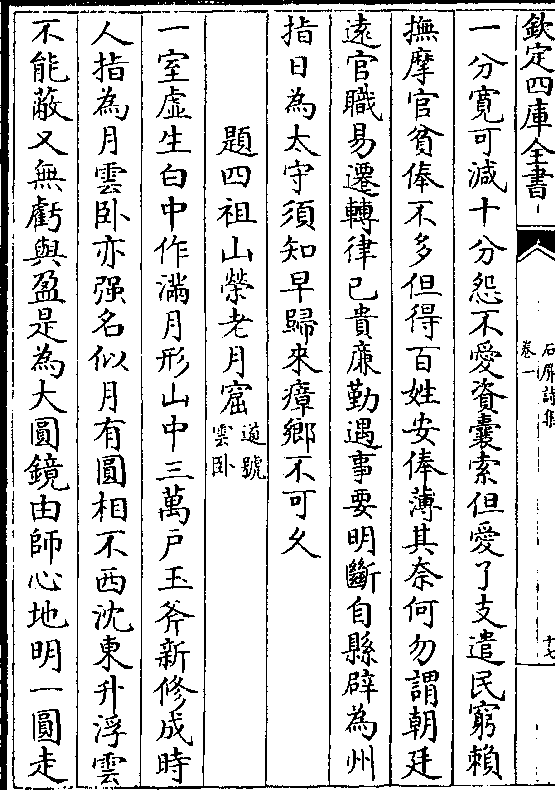 欽定四庫全書
石屏詩集
卷一
十七
一分寛可減十分怨不愛資囊索但愛了支遣民窮賴
撫摩官貧俸不多但得百姓安俸薄其奈何勿謂朝廷
遠官職易遷轉律已貴廉勤遇事要明斷自縣辟為州
指日為太守須知早歸來瘴鄉不可久
題四祖山榮老月窟道號雲卧
一室虛生白中作滿月形山中三萬戶玉斧新修成時
人指為月雲卧亦强名似月有圓相不西沈東升浮雲
不能蔽又無虧與盈是為大圓鏡由師心地明一圓走